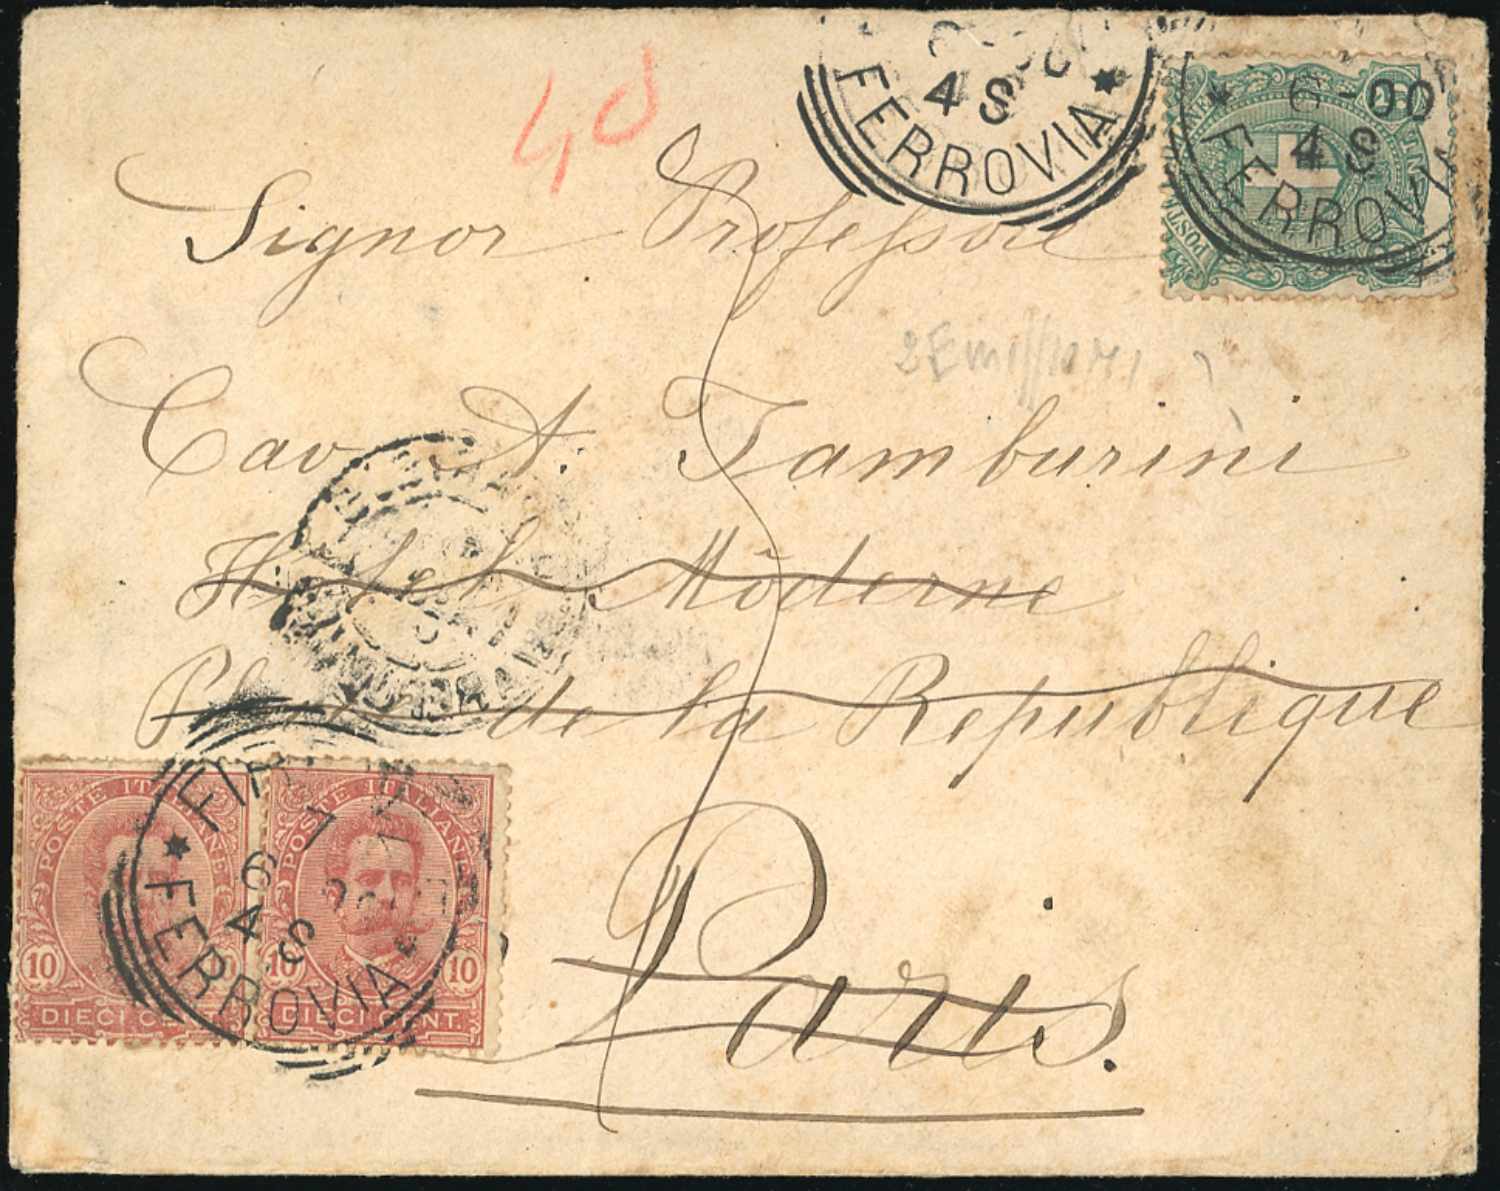 40
6-00
4 S
FERROVIA
6-00
4 S
FERROVIA
Signor Professore
Cav A. Tamburini
Hotel Môderne
Place de la Republique
Paris.
POSTE ITALIANE
10 10
DIECI CENT.
POSTE ITALIANE
10 10
DIECI CENT.
6
4 S
FERROVIA